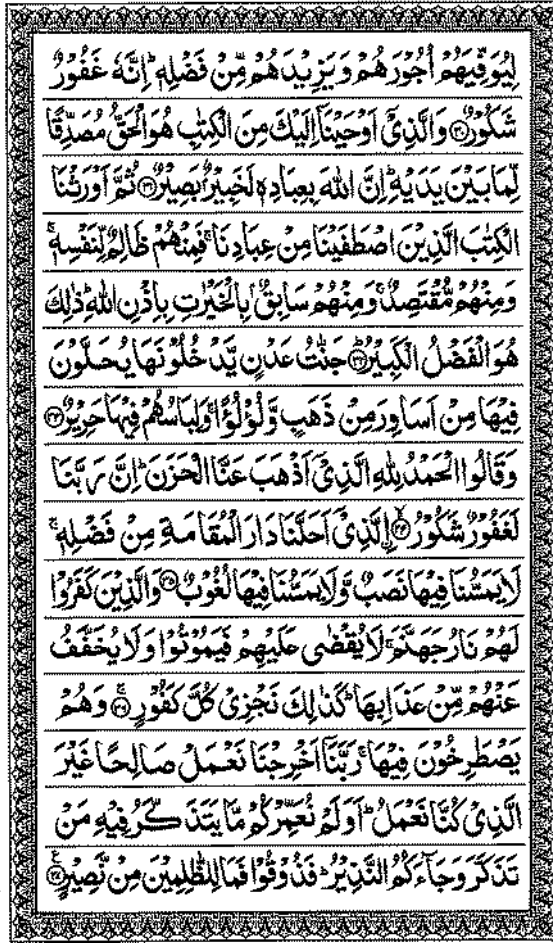 لِيُوَفِّيَهُمْ اُجُوْرَهُمْ وَيَزِيْدَهُمْ مِّنْ فَضْلِهٖ ؕ اِنَّهٗ غَفُوْرٌ
شَكُوْرٌ ﴿۳۰﴾ وَالَّذِيْۤ اَوْحَيْنَاۤ اِلَيْكَ مِنَ الْكِتٰبِ هُوَ الْحَقُّ مُصَدِّقًا
لِّمَا بَيْنَ يَدَيْهِ ؕ اِنَّ اللّٰهَ بِعِبَادِهٖ لَخَبِيْرٌۢ بَصِيْرٌ ﴿۳۱﴾ ثُمَّ اَوْرَثْنَا
الْكِتٰبَ الَّذِيْنَ اصْطَفَيْنَا مِنْ عِبَادِنَا ۚ فَمِنْهُمْ ظَالِمٌ لِّنَفْسِهٖ ۚ
وَمِنْهُمْ مُّقْتَصِدٌ ۚ وَمِنْهُمْ سَابِقٌۢ بِالْخَيْرٰتِ بِاِذْنِ اللّٰهِ ؕ ذٰلِكَ
هُوَ الْفَضْلُ الْكَبِيْرُ ﴿۳۲﴾ جَنّٰتُ عَدْنٍ يَّدْخُلُوْنَهَا يُحَلَّوْنَ
فِيْهَا مِنْ اَسَاوِرَ مِنْ ذَهَبٍ وَّلُؤْلُؤًا ۚ وَلِبَاسُهُمْ فِيْهَا حَرِيْرٌ ﴿۳۳﴾
وَقَالُوا الْحَمْدُ لِلّٰهِ الَّذِيْۤ اَذْهَبَ عَنَّا الْحَزَنَ ؕ اِنَّ رَبَّنَا
لَغَفُوْرٌ شَكُوْرُ ﴿۳۴﴾ ۙالَّذِيْۤ اَحَلَّنَا دَارَ الْمُقَامَةِ مِنْ فَضْلِهٖ ۚ
لَا يَمَسُّنَا فِيْهَا نَصَبٌ وَّلَا يَمَسُّنَا فِيْهَا لُغُوْبٌ ﴿۳۵﴾ وَالَّذِيْنَ كَفَرُوْا
لَهُمْ نَارُ جَهَنَّمَ ۚ لَا يُقْضٰى عَلَيْهِمْ فَيَمُوْتُوْا وَلَا يُخَفَّفُ
عَنْهُمْ مِّنْ عَذَابِهَا ؕ كَذٰلِكَ نَجْزِيْ كُلَّ كَفُوْرٍ ﴿۳۶﴾ ۚ وَهُمْ
يَصْطَرِخُوْنَ فِيْهَا ۚ رَبَّنَاۤ اَخْرِجْنَا نَعْمَلْ صَالِحًا غَيْرَ
الَّذِيْ كُنَّا نَعْمَلُ ؕ اَوَلَمْ نُعَمِّرْكُمْ مَّا يَتَذَكَّرُ فِيْهِ مَنْ
تَذَكَّرَ وَجَآءَكُمُ النَّذِيْرُ ؕ فَذُوْقُوْا فَمَا لِلظّٰلِمِيْنَ مِنْ نَّصِيْرٍ ﴿۳۷﴾